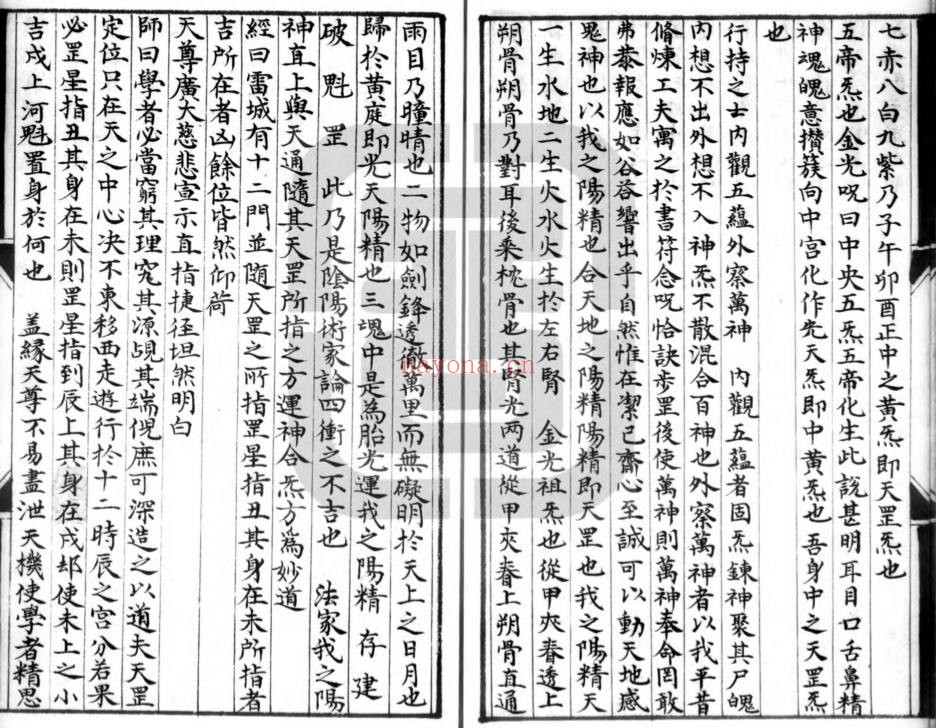 七赤八白九紫乃子午卯酉正中之黄炁即天罡炁也
五帝炁也金光呪曰中央五炁五帝化生此説甚明耳目口舌鼻精
神魂魄意攅簇向中宫化作先天炁即中黄炁也吾身中之天罡炁
也
行持之士内觀五藴外察萬神　内觀五藴者固炁鍊神聚其尸魄
内想不出外想不入神炁不散混合百神也外察萬神者以我平昔
脩煉工夫寓之於書符念呪恰訣步罡後使萬神則萬神奉命罔敢
弗恭報應如谷荅響出乎自然惟在潔己齋心至誠可以動天地感
鬼神也以我之陽精也合天地之陽精陽精即天罡也我之陽精天
一生水地二生火水火生於左右腎　金光祖炁也從甲夾脊透上
朔骨朔骨乃對耳後桒枕骨也其腎光两道從甲夾脊上朔骨直通
雨目乃瞳睛也二物如劍鋒透徹萬里而無礙明於天上之日月也
歸於黄庭即光天陽精也三塊中是為胎光運我之陽精　存　建
破　魁　罡　此乃是陰陽術家論四衝之不吉也　法家我之陽
神直上與天通隨其天罡所指之方運神合炁方為妙道
經曰雷城有十二門並随天罡之所指罡星指丑其身在未所指者
吉所在者凶餘位皆然仰荷
天尊廣大慈悲宣示直指捷徑坦然明白
師曰學者必當窮其理究其源覘其端倪庶可深造之以道夫天罡
定位只在天之中心决不東移西走遊行於十二時辰之宫分若果
必罡星指丑其身在未則罡星指到辰上其身在戌却使未上之小
吉戌上河魁置身於何也　盖縁天尊不易盡泄天機使學者精思
nayona.cn